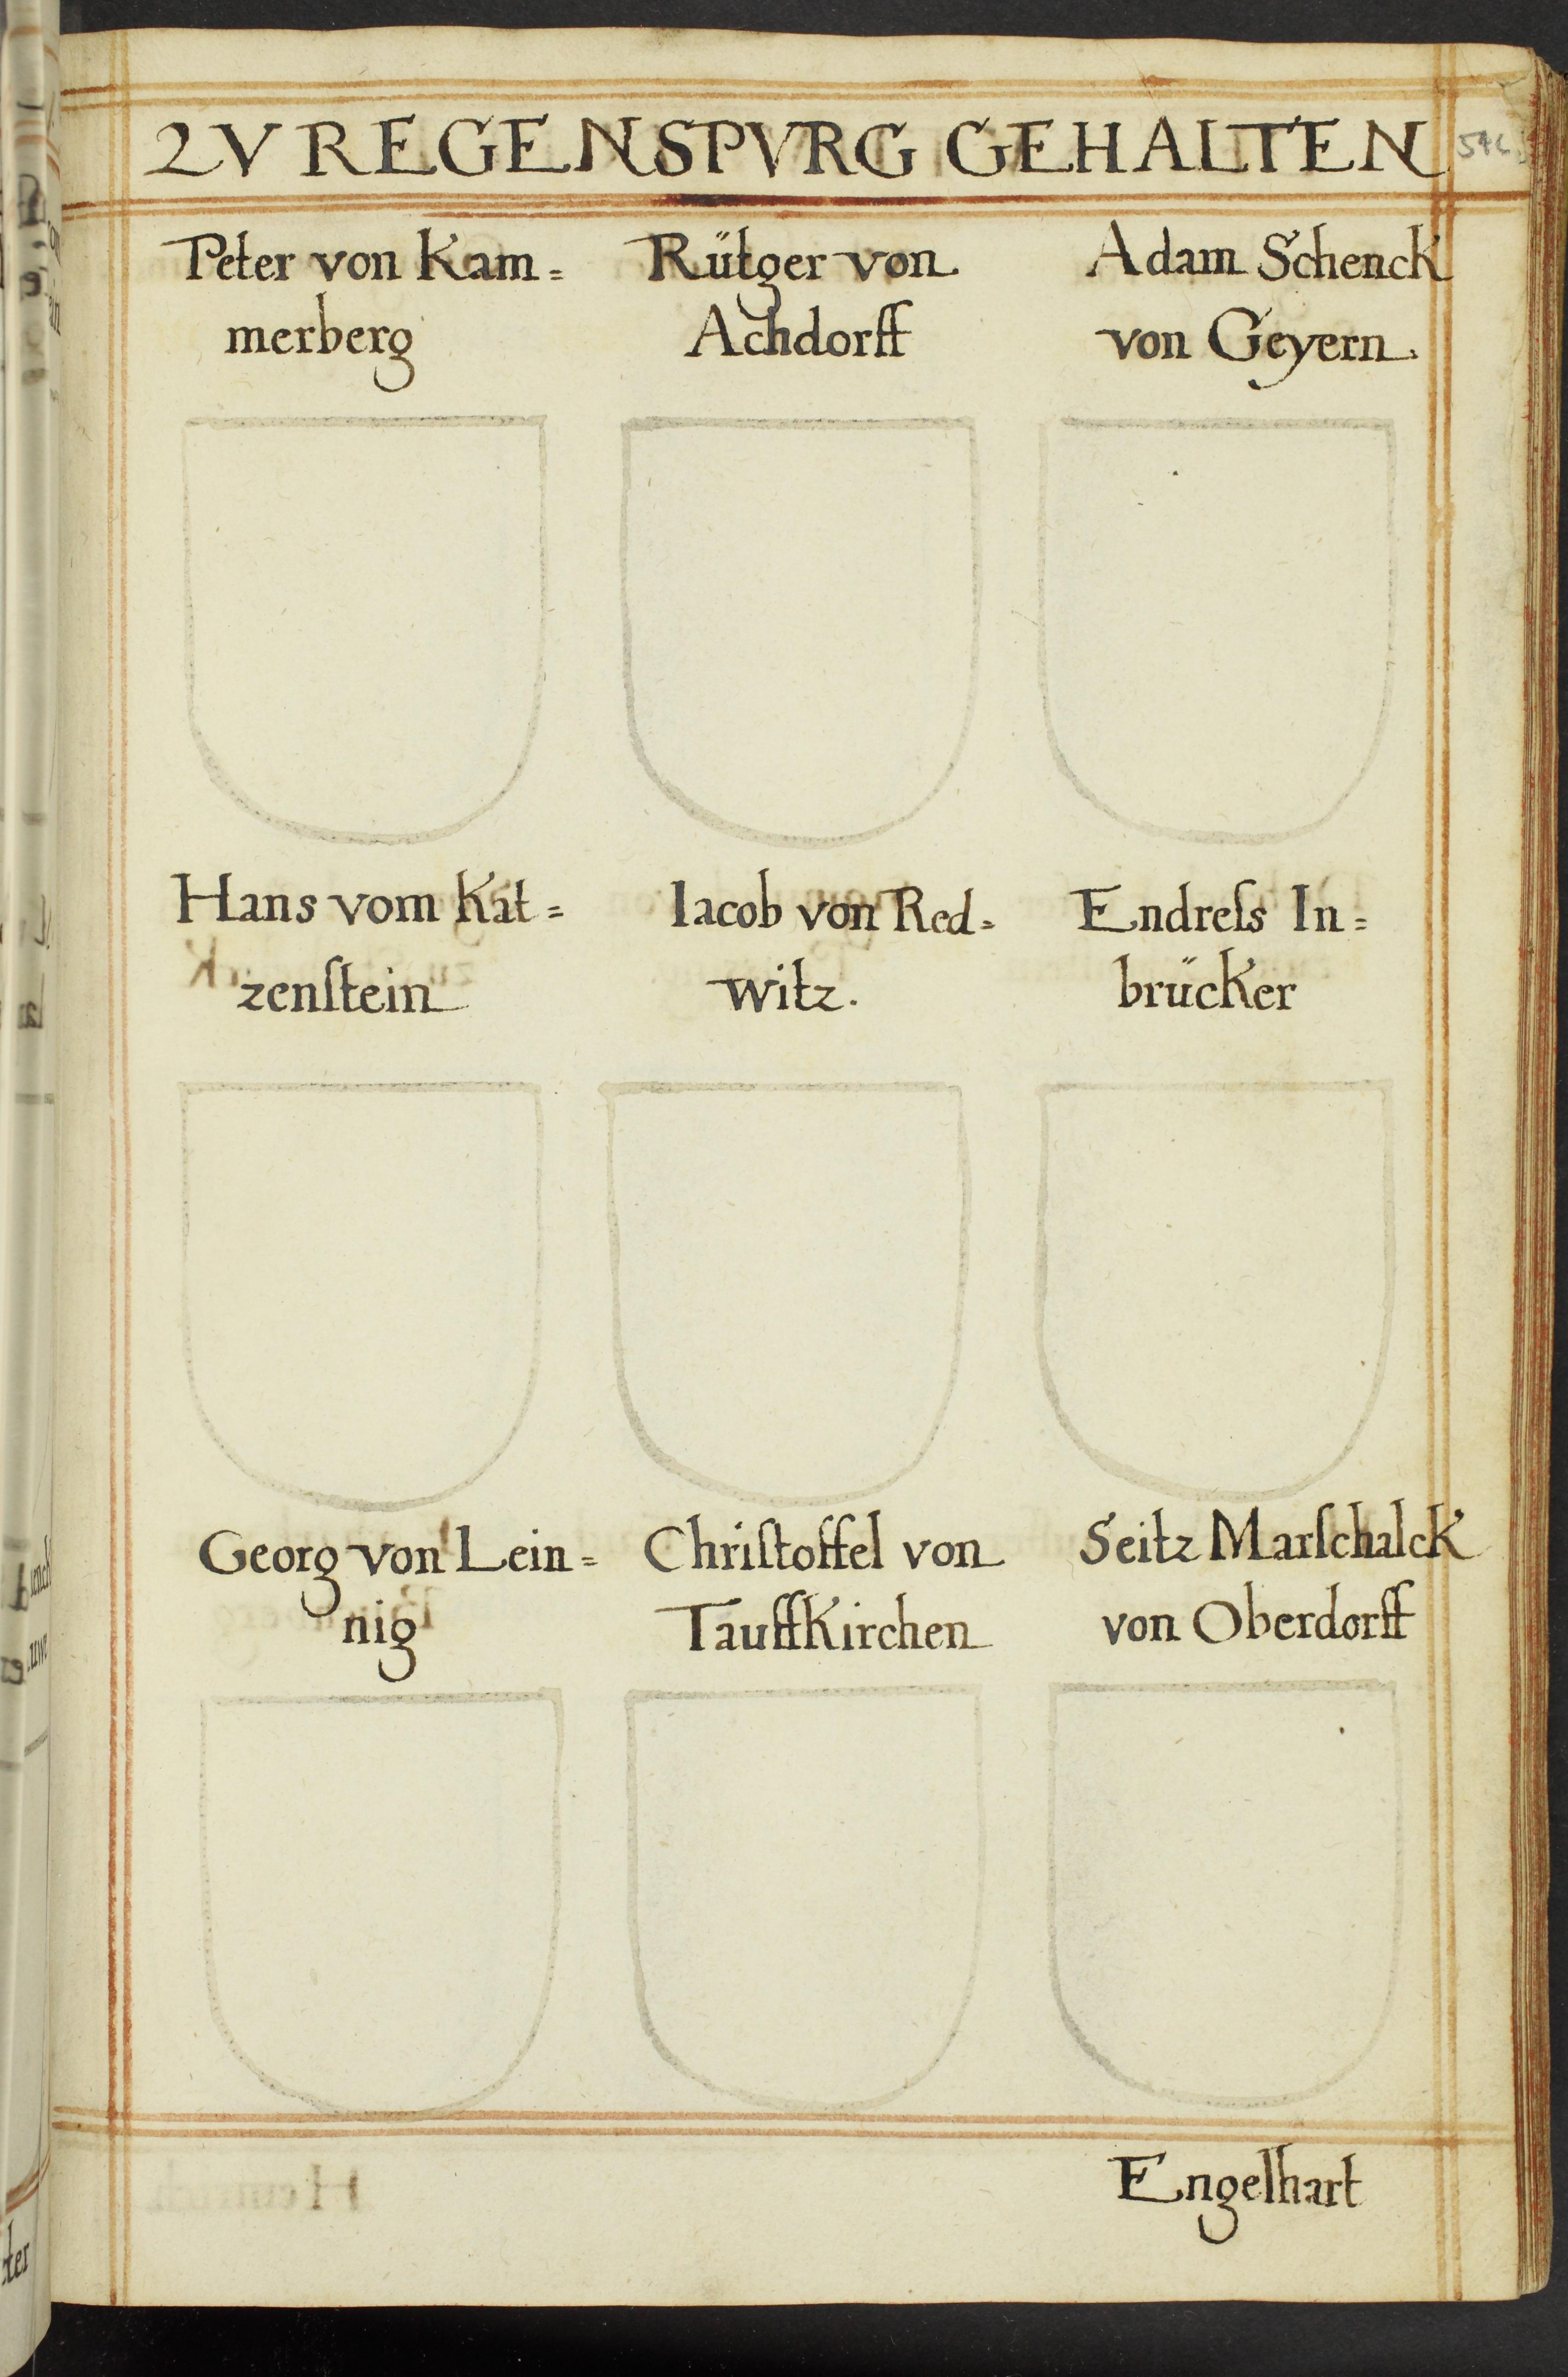 ZV REGENSPVRG GEHALTEN
Peter von Kam=
merberg
Rütger von
Achdorff
Adam Schenck
von Geyern.
Hans vom Kat=
zenſtein
Iacob von Red=
witz.
Endreſs In=
brücker
Georg von Lein=
nig
Chriſtoffel von
Tauffkirchen
Seitz Marſchalck
von Oberdorff
Engelhart